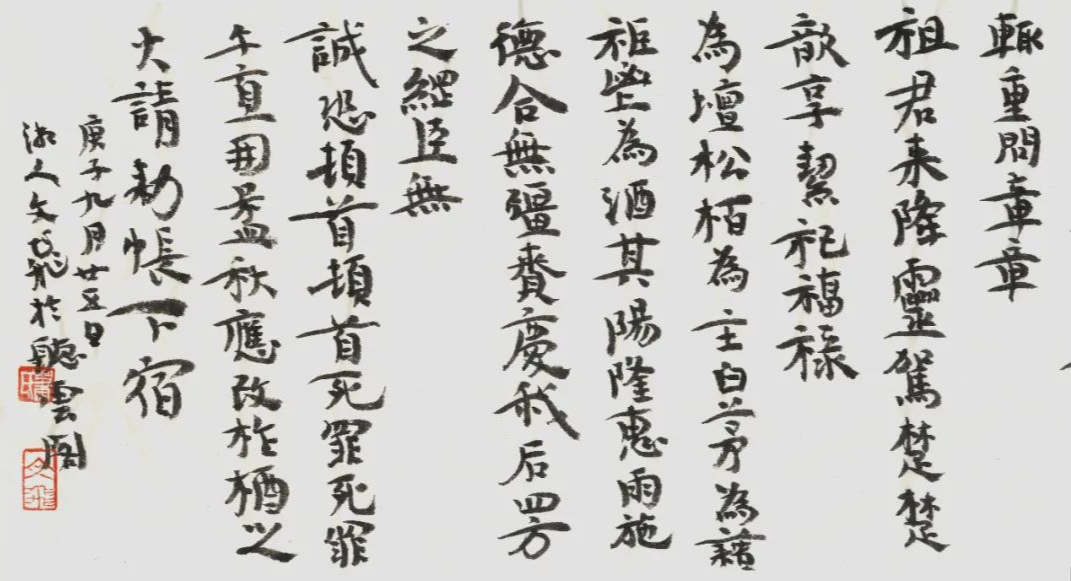 輒重問章章
祖君来隆靈駕楚楚
歆享絜祀福祿
為壇松栢為主白茅為藉
秬鬯為酒其陽隆惠雨施
德合無彊賚慶我后四方
之綱臣無
誠恐頓首頓首死罪死罪
午直秋應改柞楢之
火請勑帳下宿
庚子九月廿五日
湘人文飛於聽雲閣